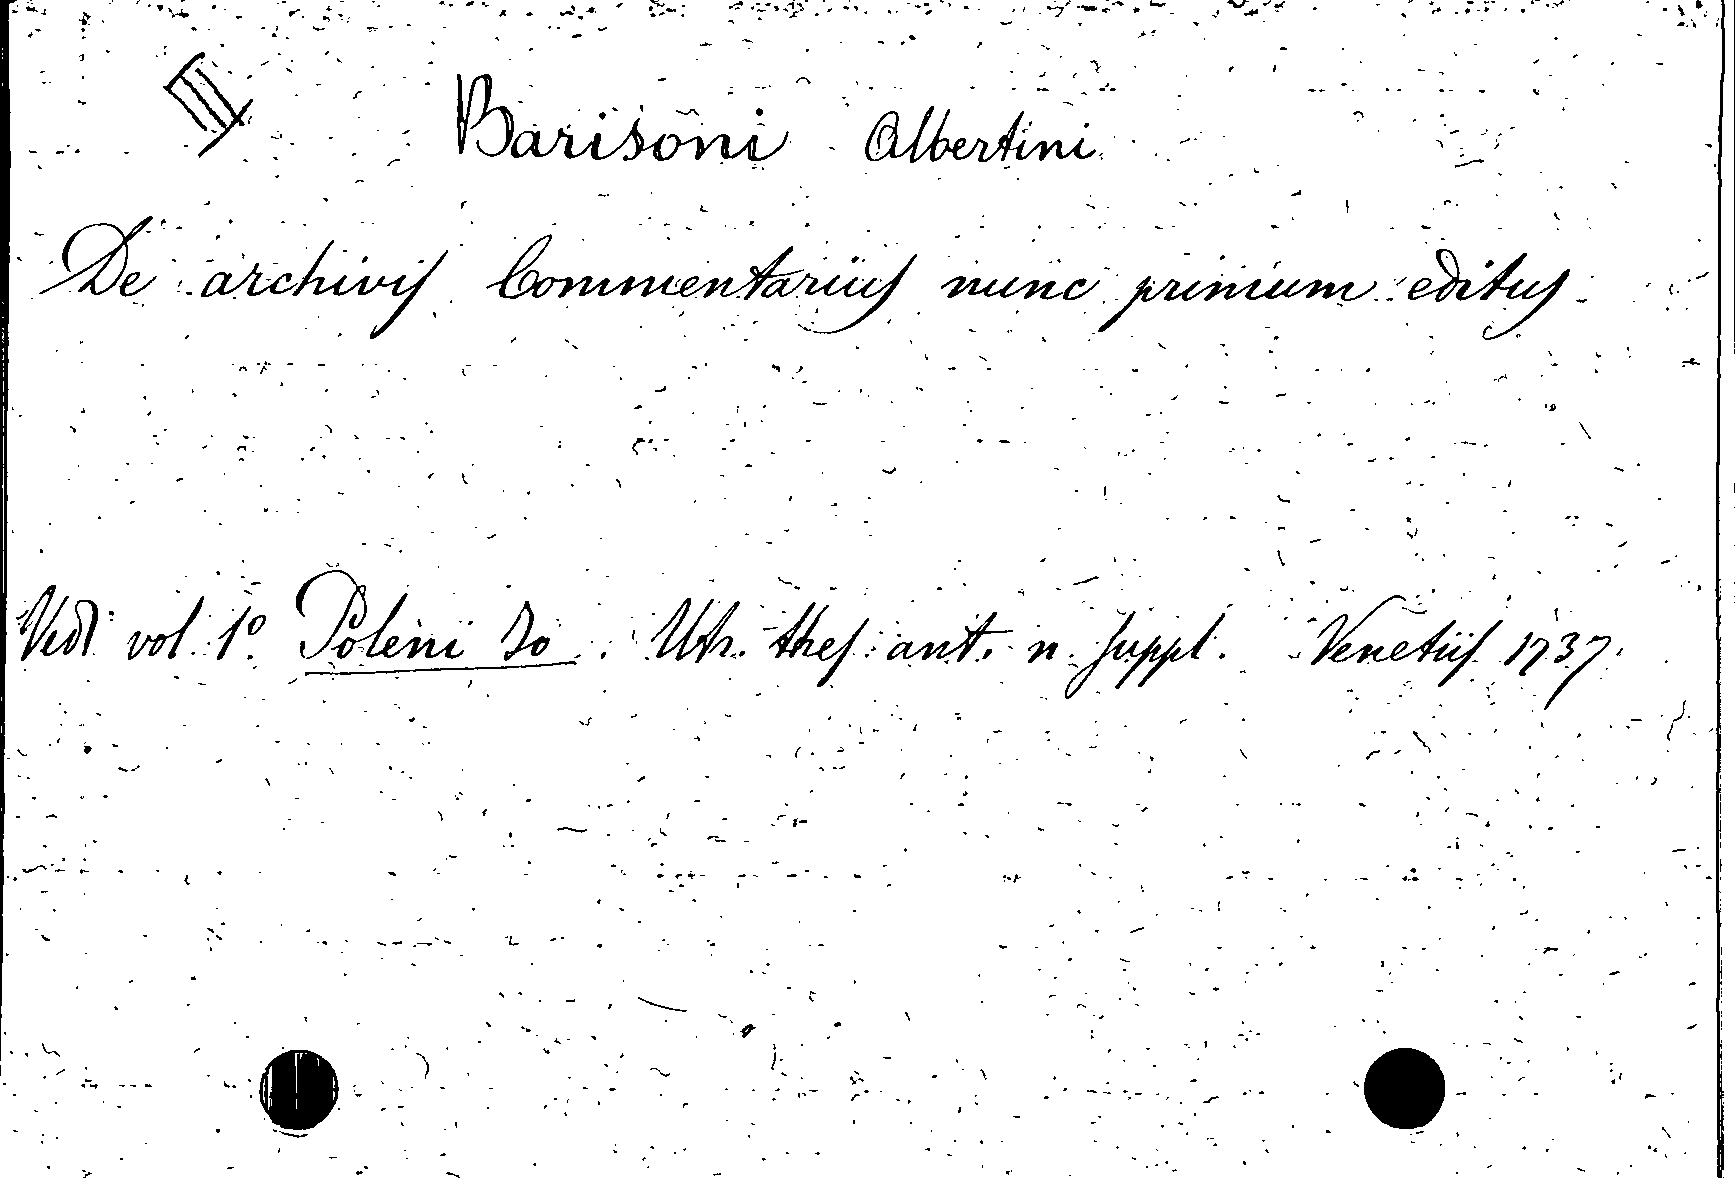 III
Barisoni Albertini
De archivis Commentarius nunc primum editus
Ved. vol. 1º Poleni Io. Utr. thes. ant. n. suppl. Venetiis 1737.